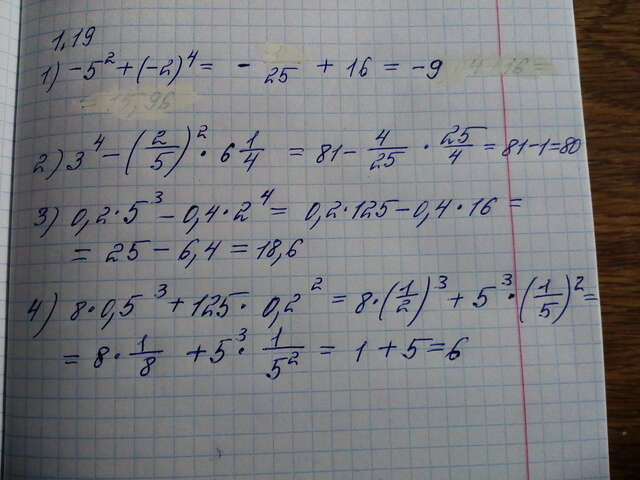 1,19
1) -5² + (-2)⁴ = - 25 + 16 = -9
= 15,96
2) 3⁴ - (2/5)² · 6 1/4 = 81 - 4/25 · 25/4 = 81-1=80
3) 0,2 · 5³ - 0,4 · 2⁴ = 0,2 · 125 - 0,4 · 16 =
= 25 - 6,4 = 18,6
4) 8 · 0,5³ + 125 · 0,2² = 8 · (1/2)³ + 5³ · (1/5)² =
= 8 · 1/8 + 5³ · 1/5² = 1 + 5 = 6